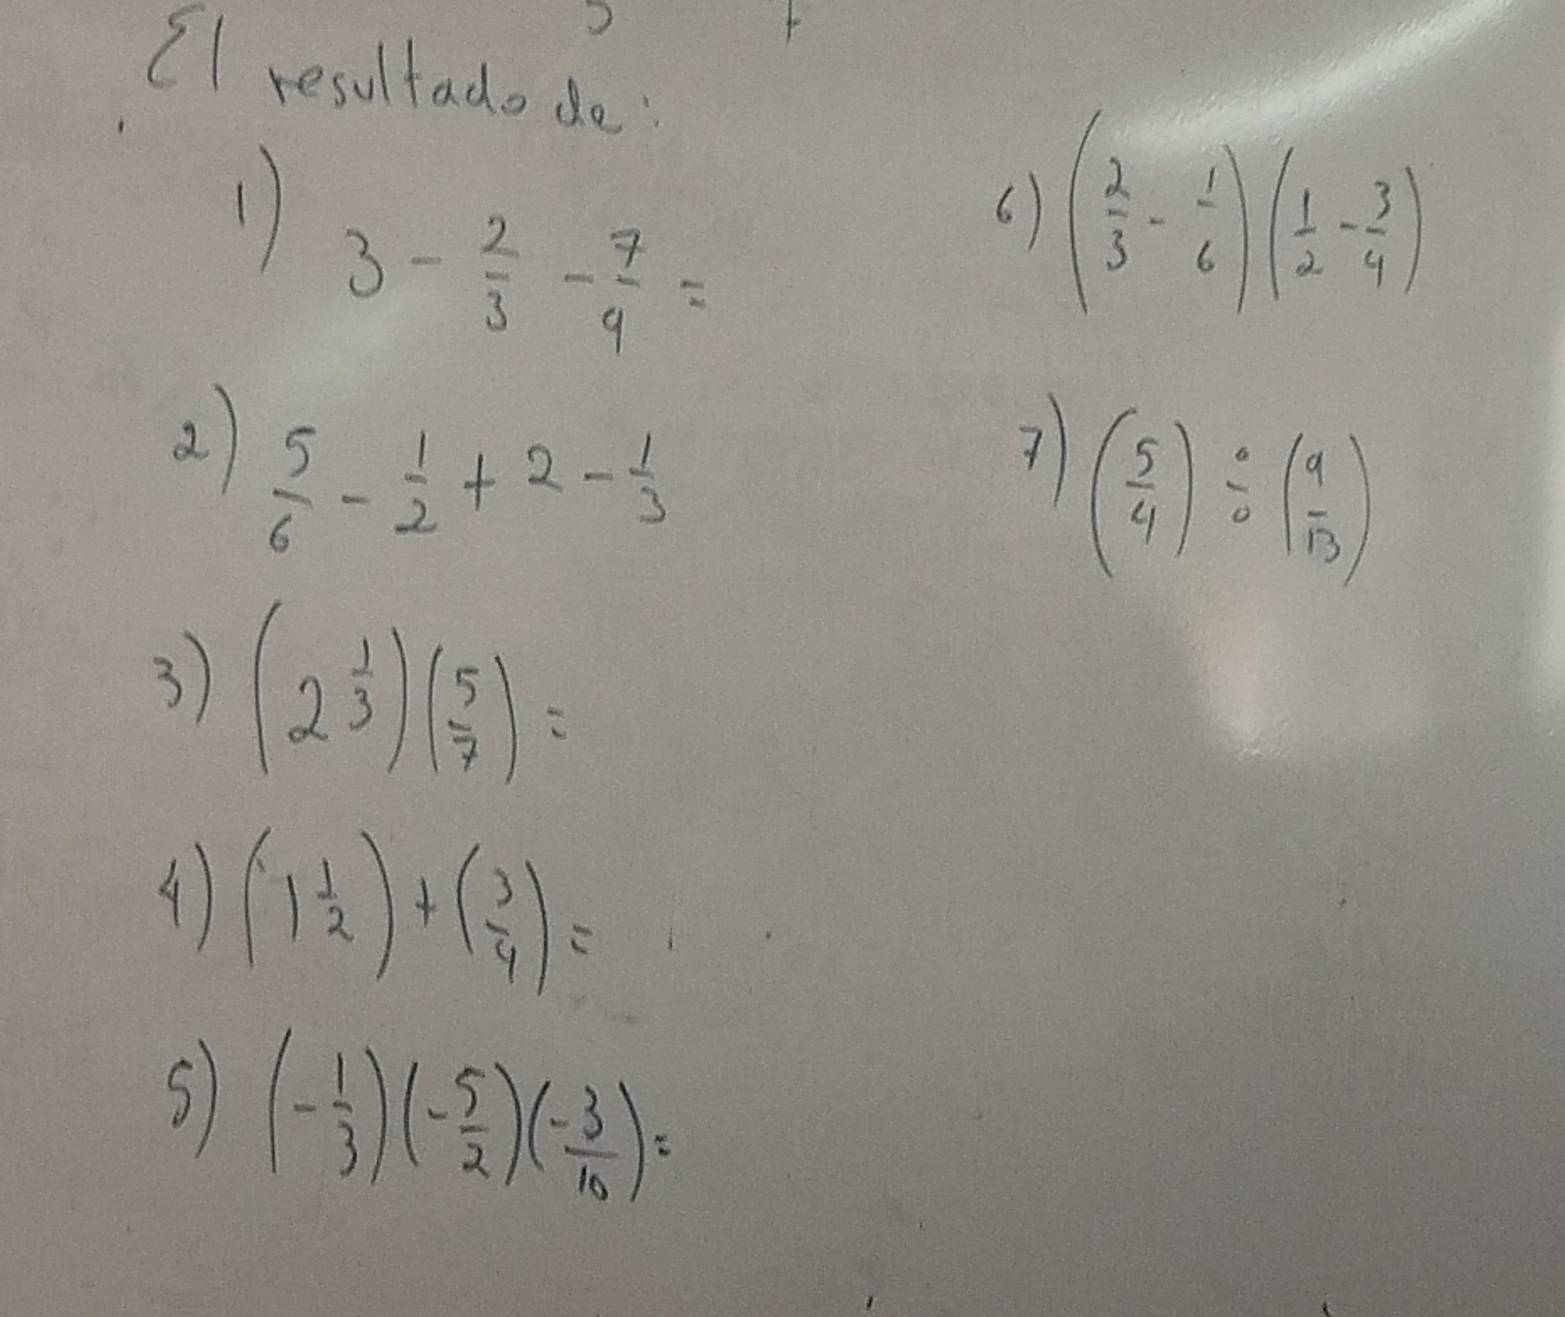 El resultado de:
1) 3 - 2/3 - 7/9 =
2) 5/6 - 1/2 + 2 - 1/3
3) (2 1/3)(5/7) =
4) (1 1/2) + (3/4) =
5) (-1/3)(-5/2)(-3/10) =
6) (2/3 - 1/6)(1/2 - 3/4)
7) (5/4) ÷ (9/13)